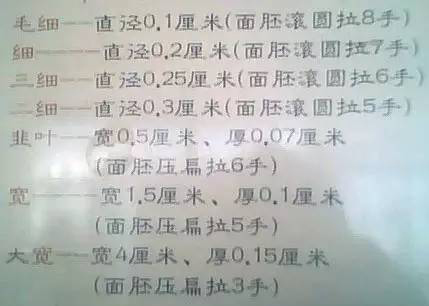 毛细——直径0.1厘米(面胚滚圆拉8手)
细———直径0.2厘米(面胚滚圆拉7手)
三细——直径0.25厘米(面胚滚圆拉6手)
二细——直径0.3厘米(面胚滚圆拉5手)
韭叶——宽0.5厘米、厚0.07厘米
(面胚压扁拉6手)
宽———宽1.5厘米、厚0.1厘米
(面胚压扁拉5手)
大宽——宽4厘米、厚0.15厘米
(面胚压扁拉3手)